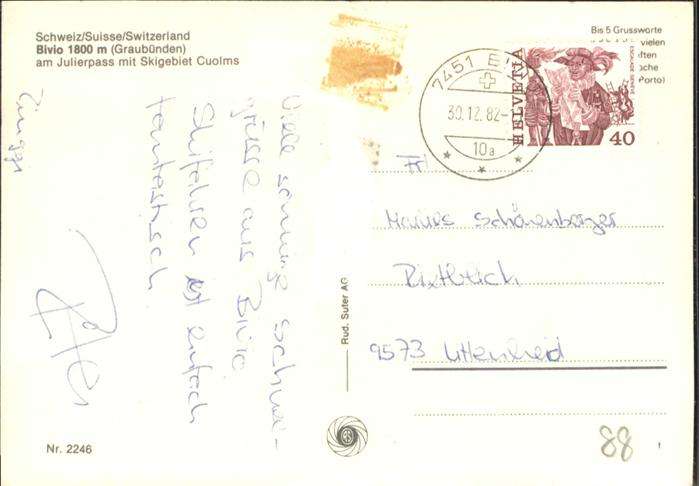 Schweiz/Suisse/Switzerland
Bivio 1800 m (Graubünden)
am Julierpass mit Skigebiet Cuolms
Bis 5 Grussworte
vielen
ften
oche
Porto)
7451 B
30.12.82-
10a
HELVETIA
ESCALADE GENÈVE
40
Viele sonnige Schnee-
grüsse aus Bivio
Skifahren ist einfach
fantastisch
Marius Schönenberger
9573 Littenheid
Rud. Suter AG
Nr. 2246
88